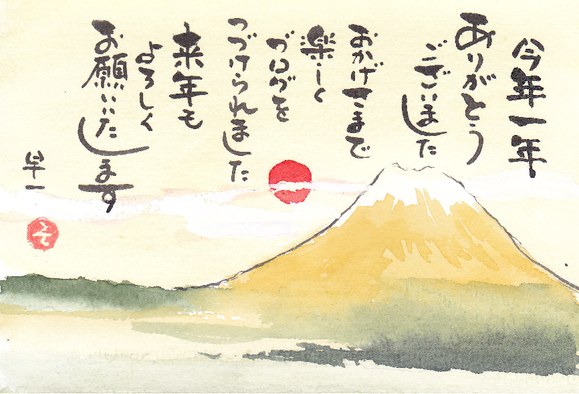 今年一年
ありがとう
ございました
おかげさまで
楽しく
ブログを
つづけられました
来年も
よろしく
お願いいたします
早一
そ